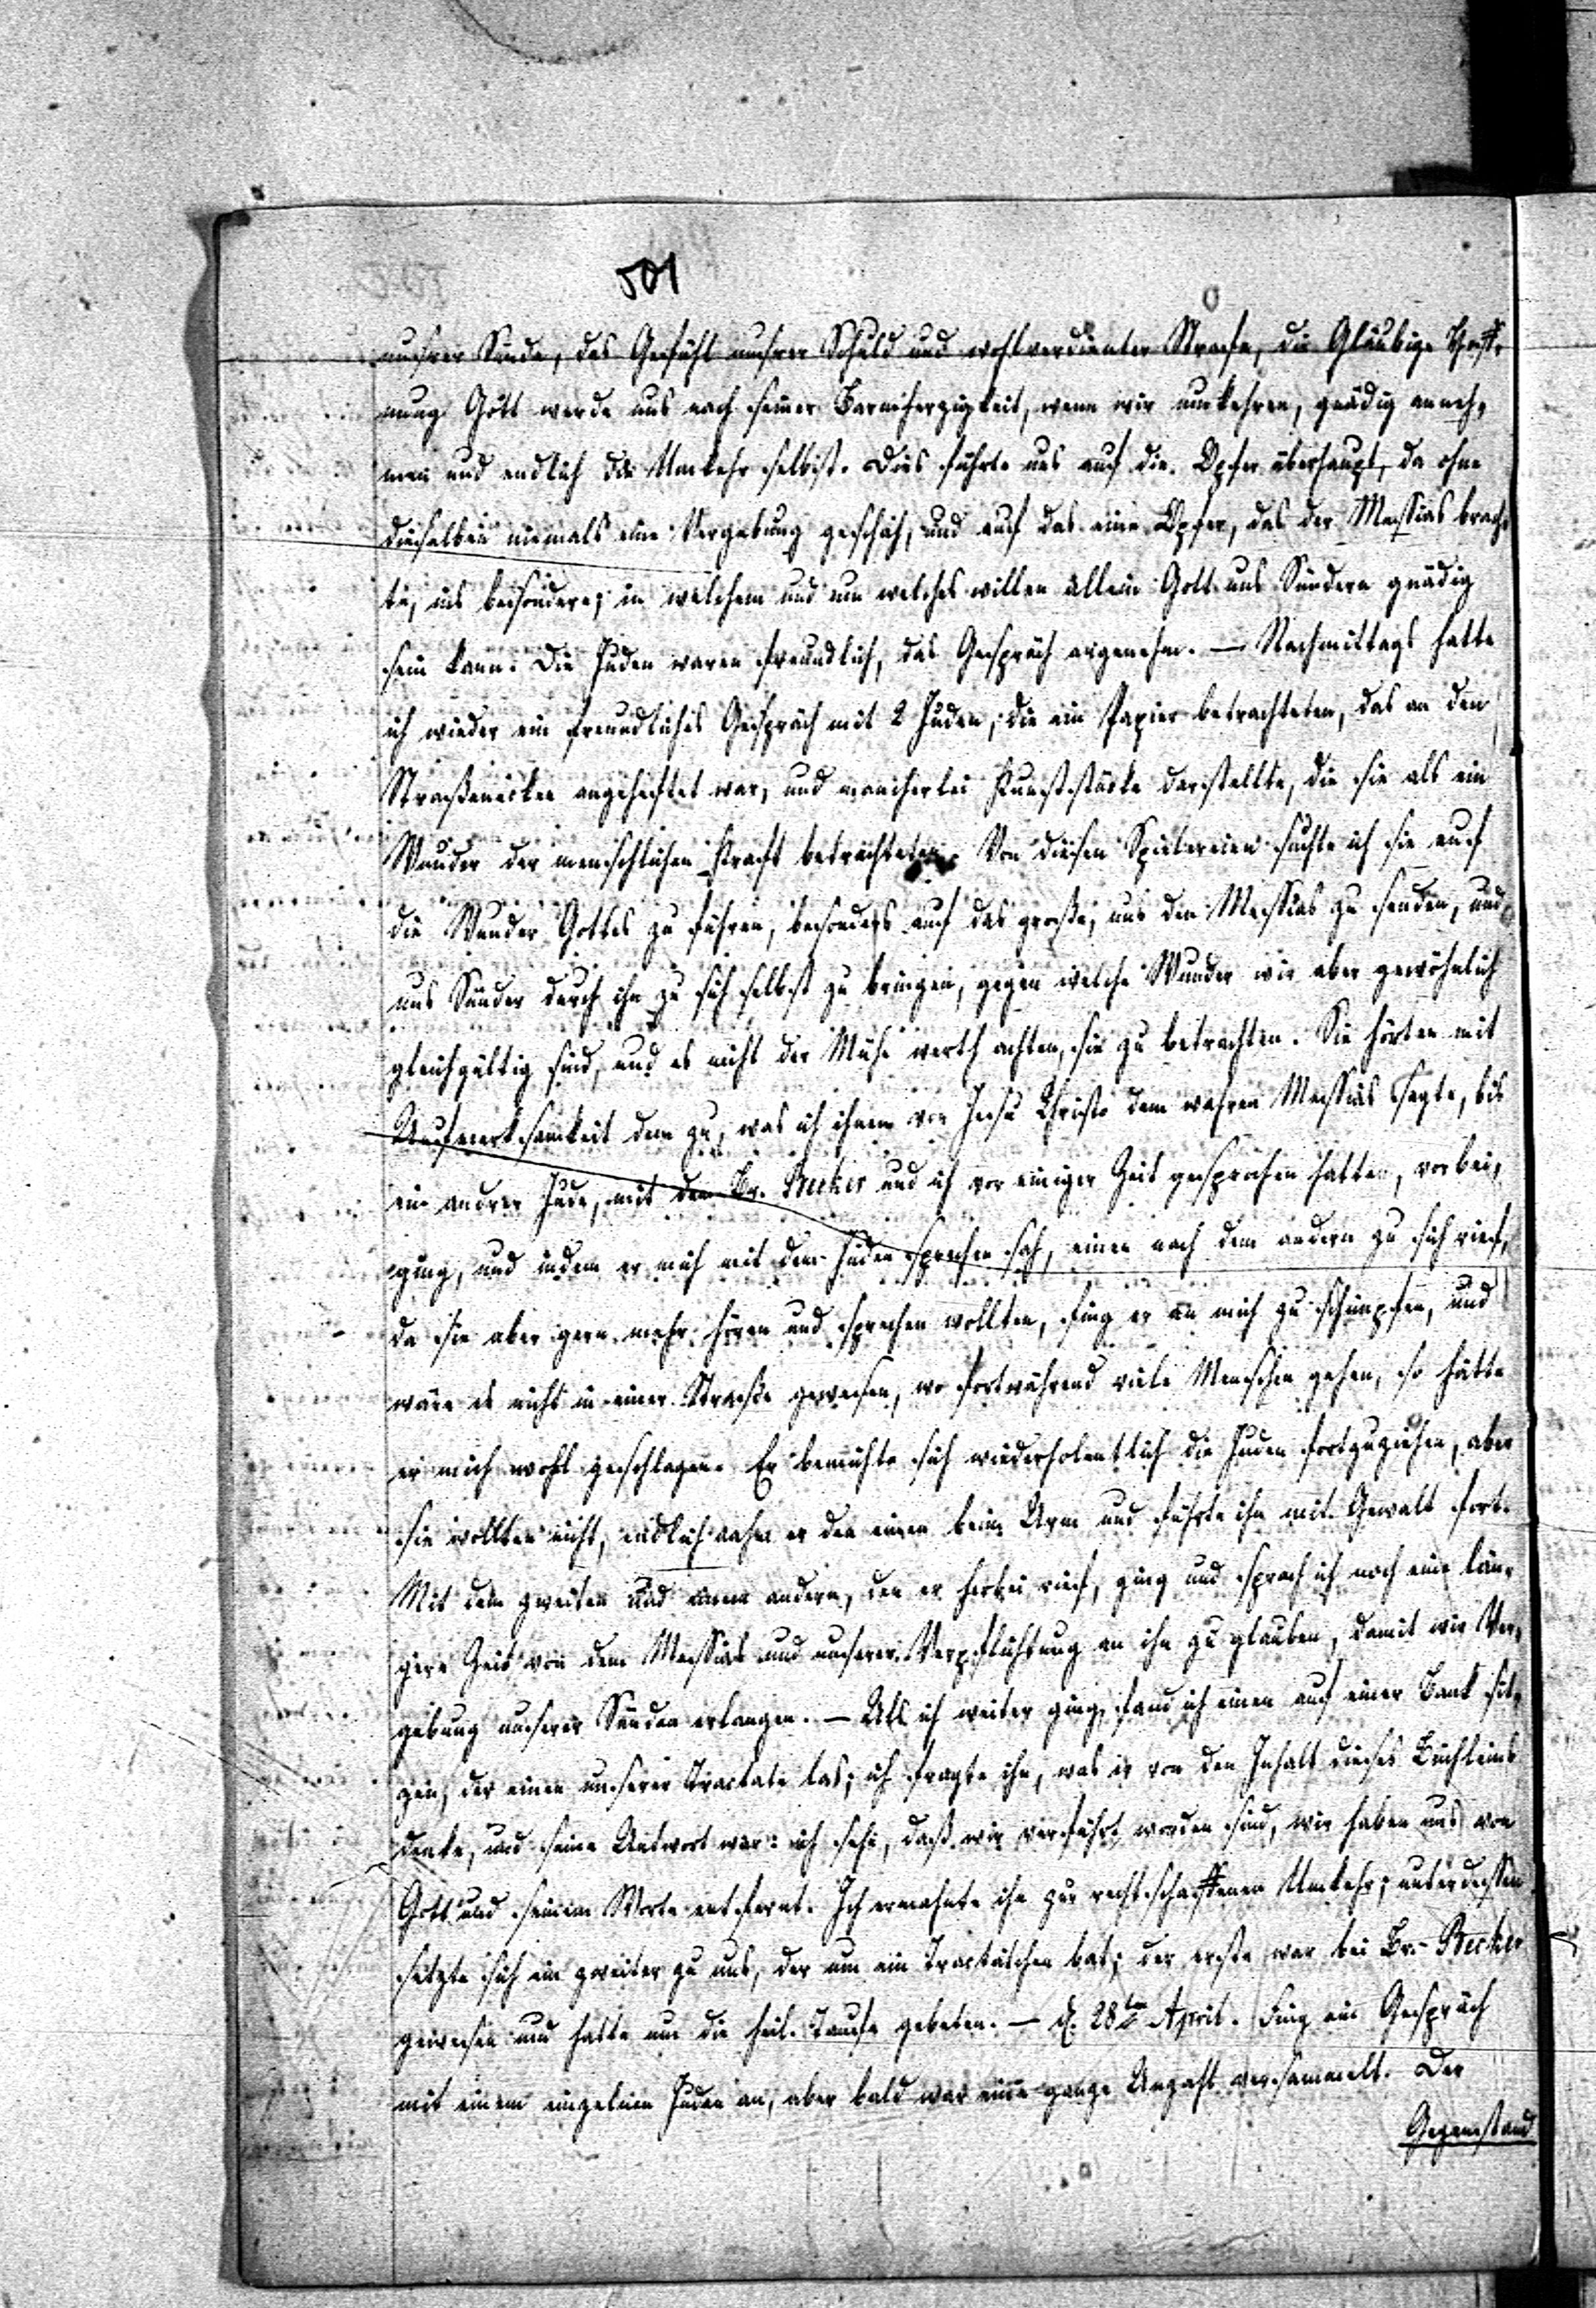 501
unsrer Sünde, das Gefühl unsrer Schuld und wohlverdienter Strafe, die Gläubige Hoff-
nung Gott werde uns nach seiner Barmherzigkeit, wenn wir umkehren, gnädig anneh-
men und endlich die Umkehr selbst. Dies führte uns auf die Opfer überhaupt, da ohne
dieselben niemals eine Vergebung geschah, und auf das eine Opfer, das der Messias brach-
te, ins besondere; in welchem und um welches willen allein Gott uns Sündern gnädig
sein kann. Die Juden waren freundlich, das Gespräch angenehm. — Nachmittags hatte
ich wieder ein freundliches Gespräch mit 2 Juden, die ein Papier betrachteten, das an den
Straßenecken angeheftet war, und mancherlei Kunststücke darstellte, die sie als ein
Wunder der menschlichen Kraft betrachteten. Von diesen Spielereien suchte ich sie auf
die Wunder Gottes zu führen, besonders auf das große, uns den Messias zu senden, und
uns Sünder durch ihn zu sich selbst zu bringen, gegen welche Wunder wir aber gewöhnlich
gleichgültig sind, und es nicht der Mühe werth achten, sie zu betrachten. Sie hörten mit
Aufmerksamkeit dem zu, was ich ihnen von Jesu Christo dem wahren Messias sagte, bis
ein andrer Jude, mit dem Br. Becker und ich vor einiger Zeit gesprochen hatten, vorbei-
ging, und indem er mich mit den Juden sprechen sah, einen nach dem andern zu sich rief,
da sie aber gern mehr hören und sprechen wollten, fing er an mich zu schimpfen, und
wäre es nicht in einer Straße gewesen, wo fortwährend viele Menschen gehen, so hätte
er mich wohl geschlagen. Er bemühte sich wiederholentlich die Juden fortzuziehen, aber
sie wollten nicht, endlich nahm er den einen beim Arm und führte ihn mit Gewalt fort.
Mit dem zweiten und einem andern, den er herbei rief, ging und sprach ich noch eine län-
gere Zeit von dem Messias und unserer Verpflichtung an ihn zu glauben, damit wir Ver-
gebung unserer Sünden erlangen. — Als ich weiter ging, fand ich einen auf einer Bank sit-
zen, der einen unserer Tractate las; ich fragte ihn, was er von den Inhalt dieses Büchleins
denke, und seine Antwort war: ich sehe, daß wir verführt worden sind, wir haben uns von
Gott und seinem Worte entfernt. Ich ermahnte ihn zur rechtschaffenen Umkehr; unterdessen
setzte sich ein zweiter zu uns, der um ein Tractätchen bat; der erste war bei Br. Becker
gewesen und hatte um die heil. Taufe gebeten. — d. 28ten April. Fing ein Gespräch
mit einem einzelnen Juden an, aber bald war eine ganze Anzahl versammelt. Der
Gegenstand